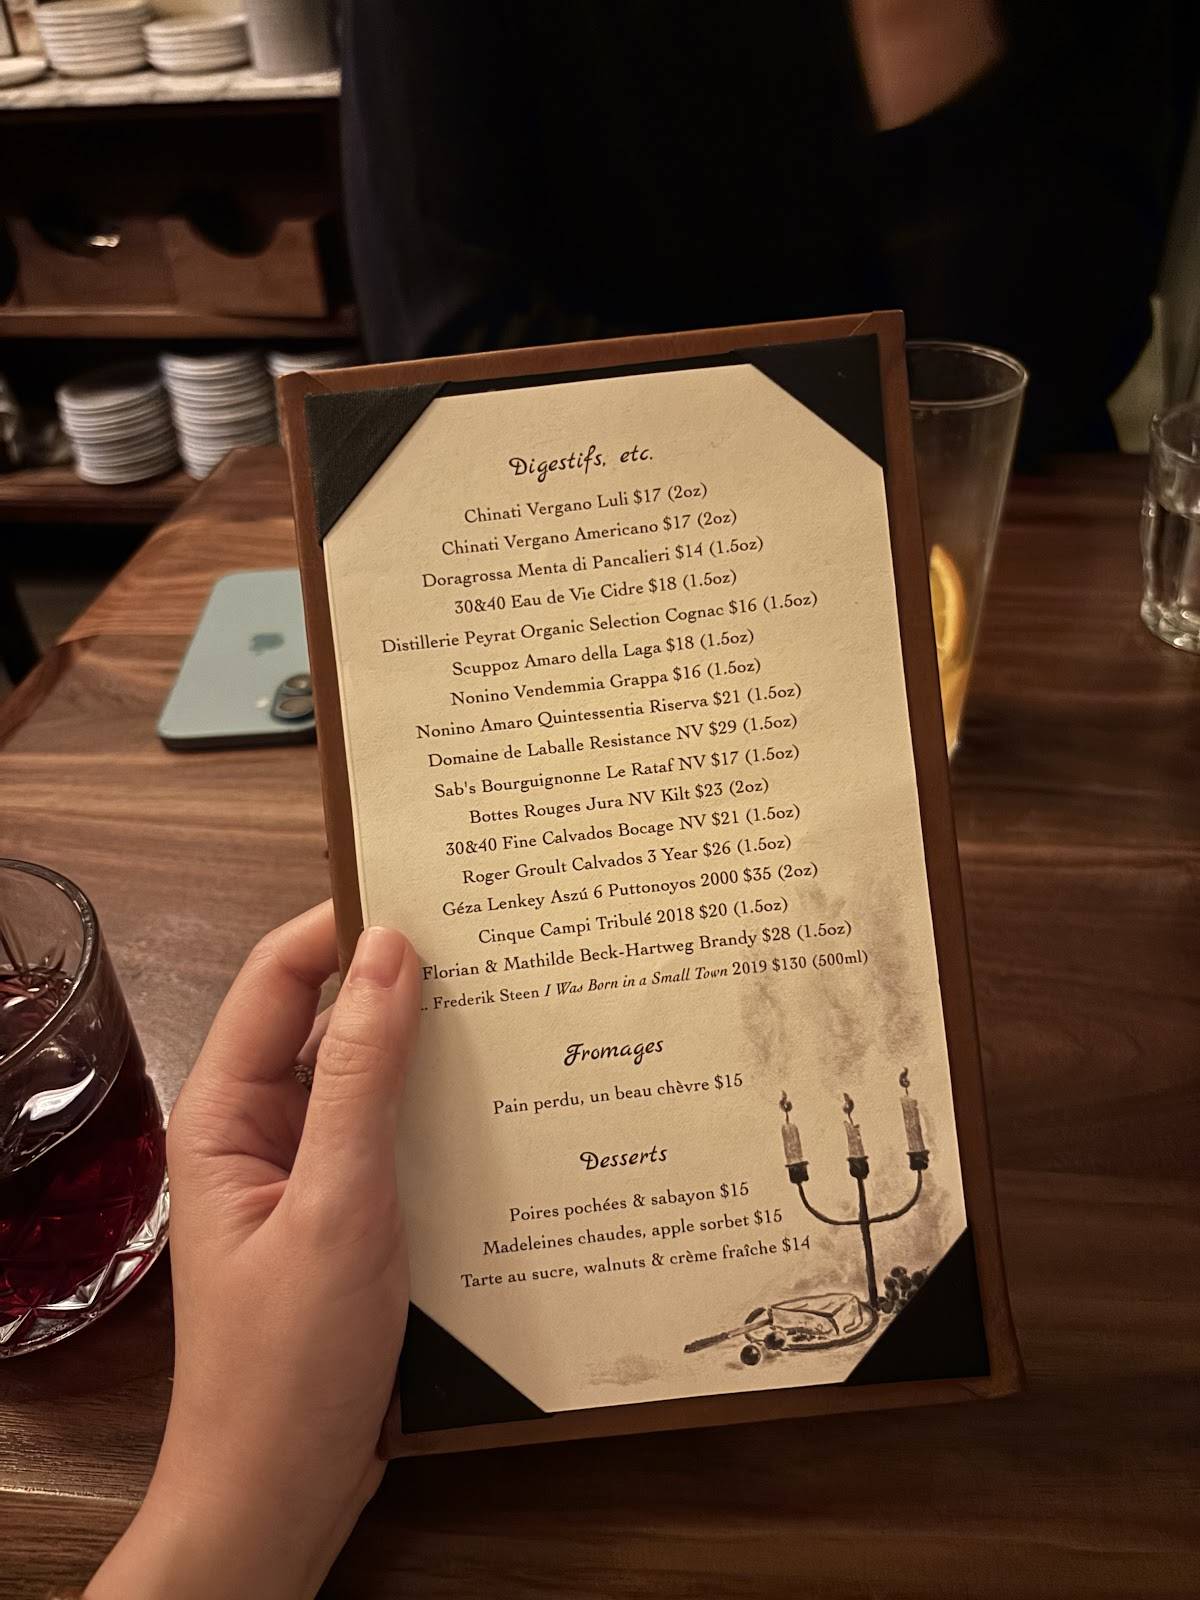 Digestifs, etc.
Chinati Vergano Luli $17 (2oz)
Chinati Vergano Americano $17 (2oz)
Doragrossa Menta di Pancalieri $14 (1.5oz)
30&40 Eau de Vie Cidre $18 (1.5oz)
Distillerie Peyrat Organic Selection Cognac $16 (1.5oz)
Scuppoz Amaro della Laga $18 (1.5oz)
Nonino Vendemmia Grappa $16 (1.5oz)
Nonino Amaro Quintessentia Riserva $21 (1.5oz)
Domaine de Laballe Resistance NV $29 (1.5oz)
Sab's Bourguignonne Le Rataf NV $17 (1.5oz)
Bottes Rouges Jura NV Kilt $23 (2oz)
30&40 Fine Calvados Bocage NV $21 (1.5oz)
Roger Groult Calvados 3 Year $26 (1.5oz)
Géza Lenkey Aszú 6 Puttonoyos 2000 $35 (2oz)
Cinque Campi Tribulé 2018 $20 (1.5oz)
Florian & Mathilde Beck-Hartweg Brandy $28 (1.5oz)
.. Frederik Steen I Was Born in a Small Town 2019 $130 (500ml)
Fromages
Pain perdu, un beau chèvre $15
Desserts
Poires pochées & sabayon $15
Madeleines chaudes, apple sorbet $15
Tarte au sucre, walnuts & crème fraîche $14